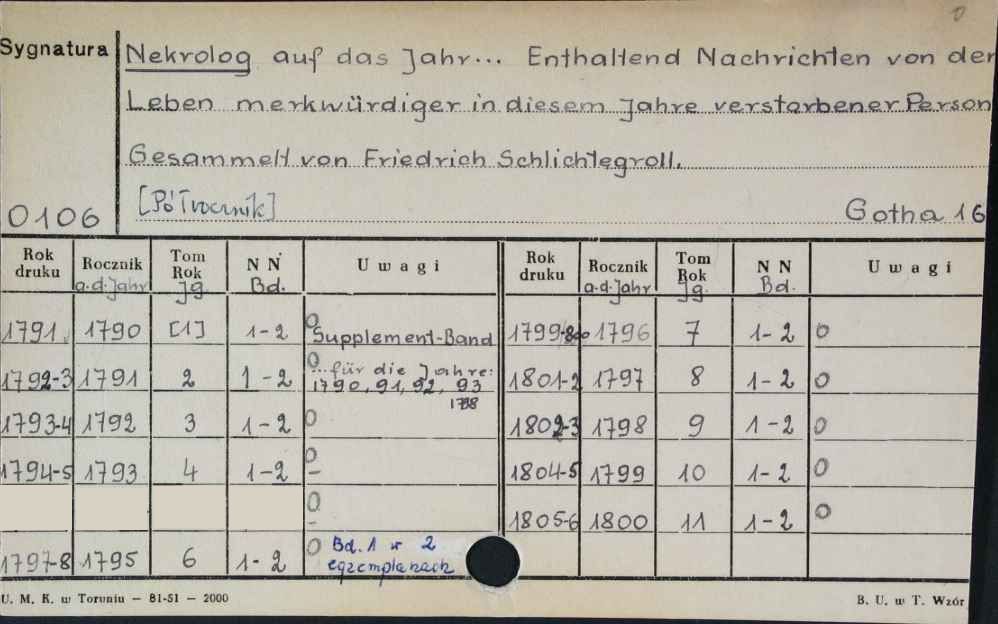 0
Sygnatura
Nekrolog auf das Jahr... Enthaltend Nachrichten von der
Leben merkwürdiger in diesem Jahre verstorbener Person
Gesammelt von Friedrich Schlichtegroll.
[Półrocznik]
0106
Gotha 16
Rok druku Rocznik a.d. Jahr Tom Rok Jg. N N Bd. Uwagi Rok druku Rocznik a.d. Jahr Tom Rok Jg. N N Bd. Uwagi
1791 1790 [1] 1-2 0 Supplement-Band 1799-800 1796 7 1-2 0
1792-3 1791 2 1-2 0 ...für die Jahre: 1790, 91, 92, 93 1801-2 1797 8 1-2 0
1798
1793-4 1792 3 1-2 0 1802-3 1798 9 1-2 0
1794-5 1793 4 1-2 0 - 1804-5 1799 10 1-2 0
0 - 1805-6 1800 11 1-2 0
1797-8 1795 6 1-2 0 Bd. 1 w 2 egzemplarzach
U. M. K. w Toruniu — 81-51 — 2000
B. U. w T. Wzór